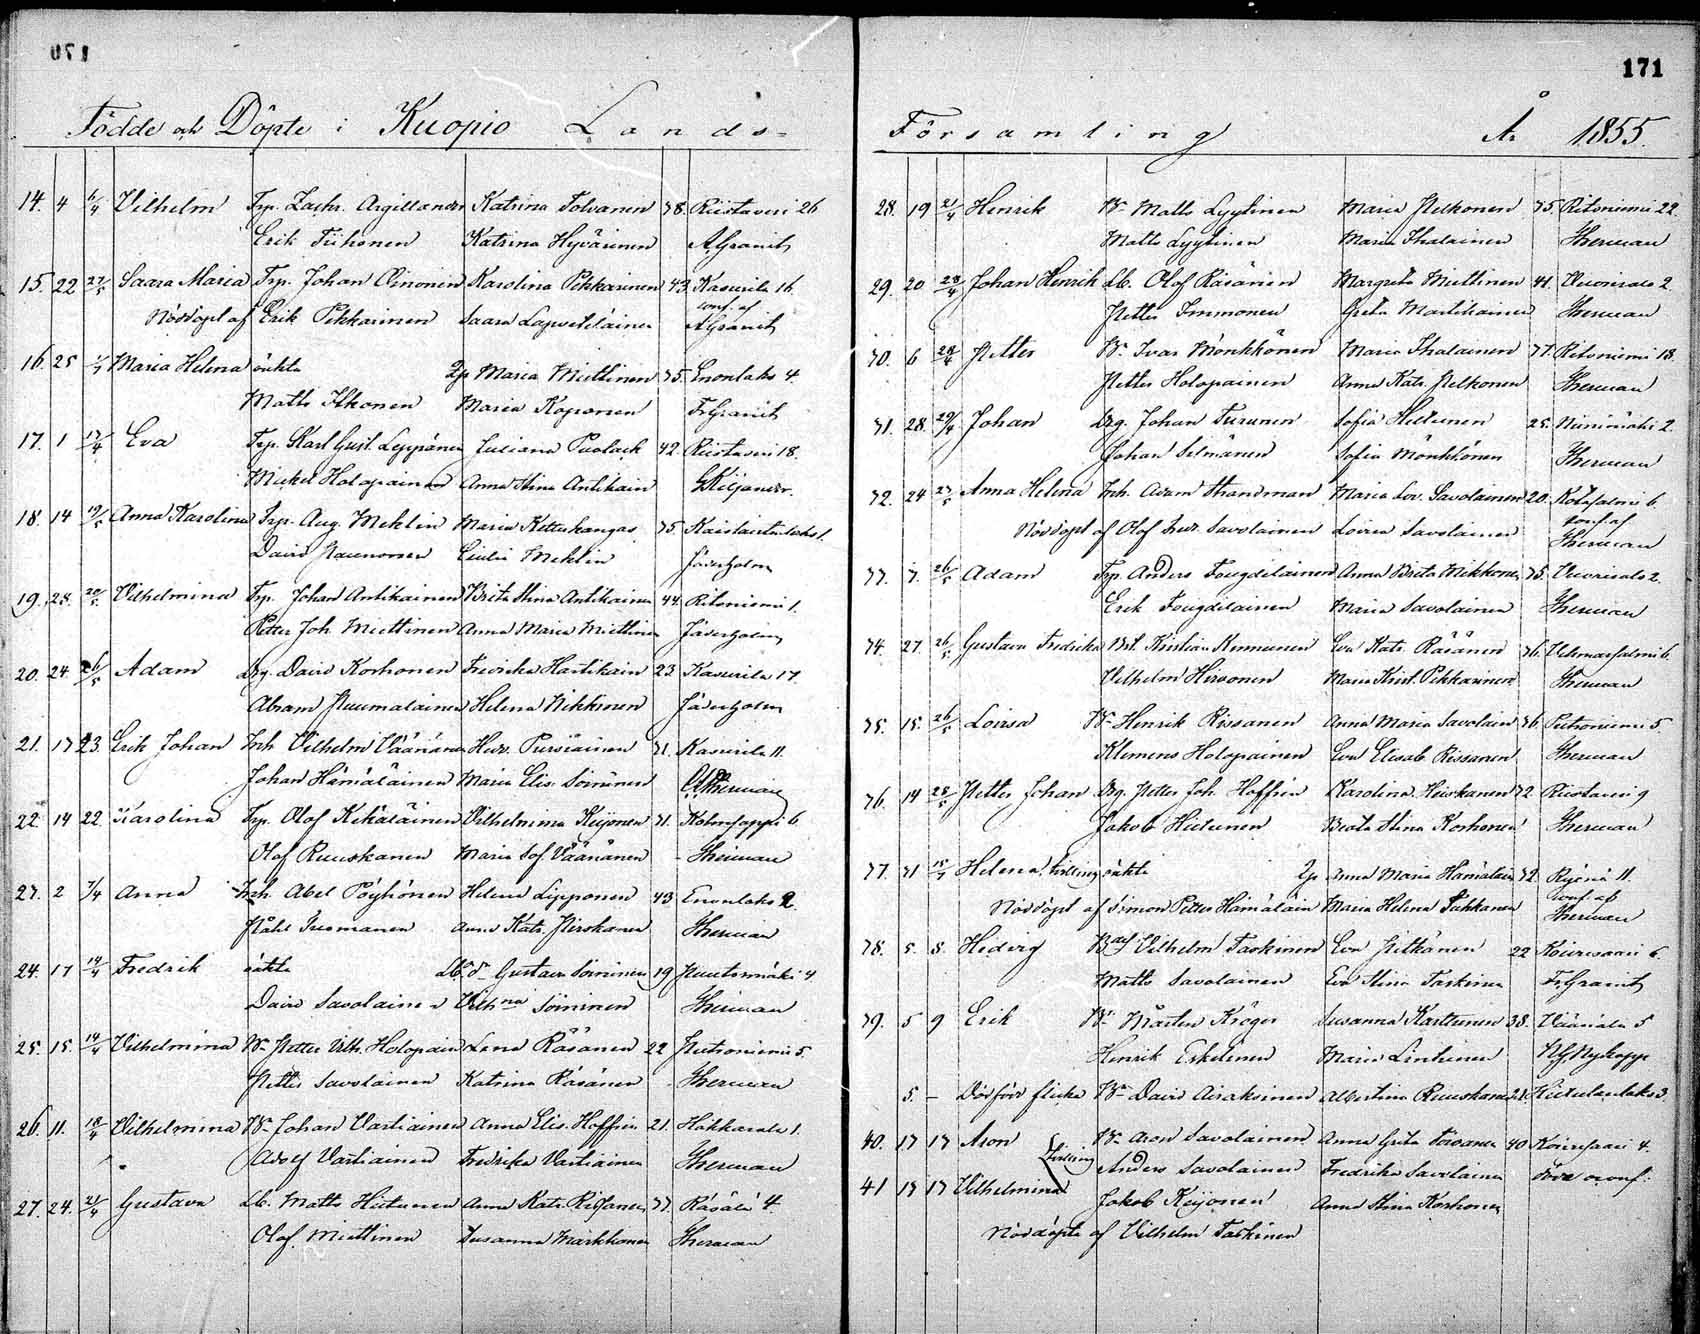 170
Födde och Döpte i Kuopio Lands-
14. 4 6/4 Vilhelm Trp. Zachr. Argillander Katrina Tolvanen 38. Riistavesi 26
Erik Tiihonen Katrina Hyvärinen A. Granit
15. 22 27/5 Saara Maria Trp. Johan Oinonen Karolina Pekkarinen 43 Kasurila 16.
conf. af
Nöddöpt af Erik Pekkarinen Saara Lapvetelainen A Granit
16. 25 Maria Helena oäkta Maria Miettinen 35. Enonlaks 4.
Matts Itkonen Maria Koponen Fr Granit
17. 1 17/4 Eva Trp. Karl Gust. Leppänen Juliana Puolack 42. Riistavesi 18.
Mickel Holopainen Anna Stina Antikain G Kiljander.
18. 14 19/5 Anna Karolina Trp. Aug. Mehlin Maria Ketterkangas 35.
David Naumonen Cecilia Mehlin Jäderholm
19. 28. 20/5 Vilhelmina Trp. Johan Antikainen Brita Stina Antikainen 44. Ritoniemi 1.
Petter Joh. Miettinen Anna Maria Miettinen Jäderholm
20. 24. 26/5 Adam Drg. David Korhonen Fredrika Hartikain 23 Kasurila 17.
Abram Raumalainen Helena Nikkinen Jäderholm
21. 17 23 Erik Johan Inh Vilhelm Väänänen Hedv. Pursiainen 31. Kasurila 11.
Johan Hämäläinen Maria Elis. Soininen Herman
22. 14 22. Karolina Trp. Olof Kekäläinen Vilhelmina Keijonen 31. Kolmisoppi 6
Olof Ruuskanen Maria Sof. Väänänen - Herman
23. 2 7/4 Anna Inh. Abel Pöyhönen Helena Lipponen 43 Enonlaks 2.
Påhl Tuomanen Anna Katr. Pirskanen Herman
24. 17 19/4 Fredrik oäkta Gustava Soininen 19 Puutosmäki 4
David Savolainen Vilhna Soininen Herman
25. 15. 19/4 Vilhelmina Bn Petter Vilh. Holopain Lena Räsänen 22 Putroniemi 5.
Petter Savolainen Katrina Räsänen - Herman
26. 11. 18/4 Vilhelmina Bn Johan Vartiainen Anna Elis. Hoffrén 21. Hakkarala 1.
Adolf Vartiainen Fredrika Vartiainen Herman
27. 24. 21/4 Gustava Lb. Matts Hietunen Anna Katr. 37. Räsälä 4.
Olof Miettinen Susanna Markkanen Herman
171
Församling År 1855.
28. 19 21/4 Henrik Bn Matts Lyytinen Maria Pelkonen 35. Ritoniemi 22.
Matts Lyytinen Maria Ihalainen Herman
29. 20 28/4 Johan Henrik Lb. Olof Räsänen Margreta Miettinen 41. Vuorisalo 2.
Petter Immonen Greta Martikainen Herman
30. 6 28/4 Petter Bn Ivar Mönkkönen Maria Ihalainen 37. Ritoniemi 18.
Petter Holopainen Anna Katr. Pelkonen Herman
31. 28. 29/4 Johan Drg. Johan Turunen Sofia Hiltunen 25. Niinimäki 2.
Johan Selmänen Sofia Mönkkönen Herman
32. 24 27/5 Anna Helena Inh. Adam Strandman Maria Lov. Savolainen 20. 6.
conf. af
Nöddöpt af Olof Fredr. Savolainen Lovisa Savolainen Herman
33. 7. 26/5 Adam Trp. Anders Tougdelainen Anna Brita Mikkonen 35. Vuorisalo 2.
Erik Tougdelainen Maria Savolainen Herman
34. 27. 26/5 Gustava Fredrika Kristian Kemunen Eva Katr. Räsänen 36. Vehmasjalmi 6.
Vilhelm Hirvonen Maria Krist. Pekkarinen Herman
35. 15. 26/5 Lovisa Bn Henrik Rissanen Anna Maria Savolain 36. Putroniemi 5.
Klemens Holopainen Eva Elisab. Rissanen Herman
36. 14 28/5 Petter Johan Drg. Petter Joh. Hoffrén Karolina Heiskanen 32. Riistavesi 9
Jakob Hietunen Beata Stina Korhonen Herman
37. 31 Helena, tvilling oäkta Anna Maria Hämäläin 32. Ryönä 11.
conf. af
Nöddöpt af Simon Petter Hämäläin Maria Helena Tukkanen Herman
38. 5. 8. Hedvig Vilhelm Taskinen Eva Pitkänen 22 Koivusaari 6.
Matts Savolainen Eva Stina Taskinen Fr. Granit
39. 5 9 Erik Bn Mårten Kröger Susanna Karttunen 38. Väänälä 5
Henrik Eskelinen Maria Lintunen Nykopp
5. - Dödfödd flicka Bn David Airaksinen Albertina Ruuskanen 21. Hietulanlaks 3.
40. 17 17 Aron Bn Aron Savolainen Anna Greta Toivanen 40 Koivusaari 4.
Tvilling Anders Savolainen Fredrika Savolainen
41 17 17 Vilhelmina Jakob Keijonen Anna Stina Korhonen
Nöddöpte af Vilhelm Taskinen